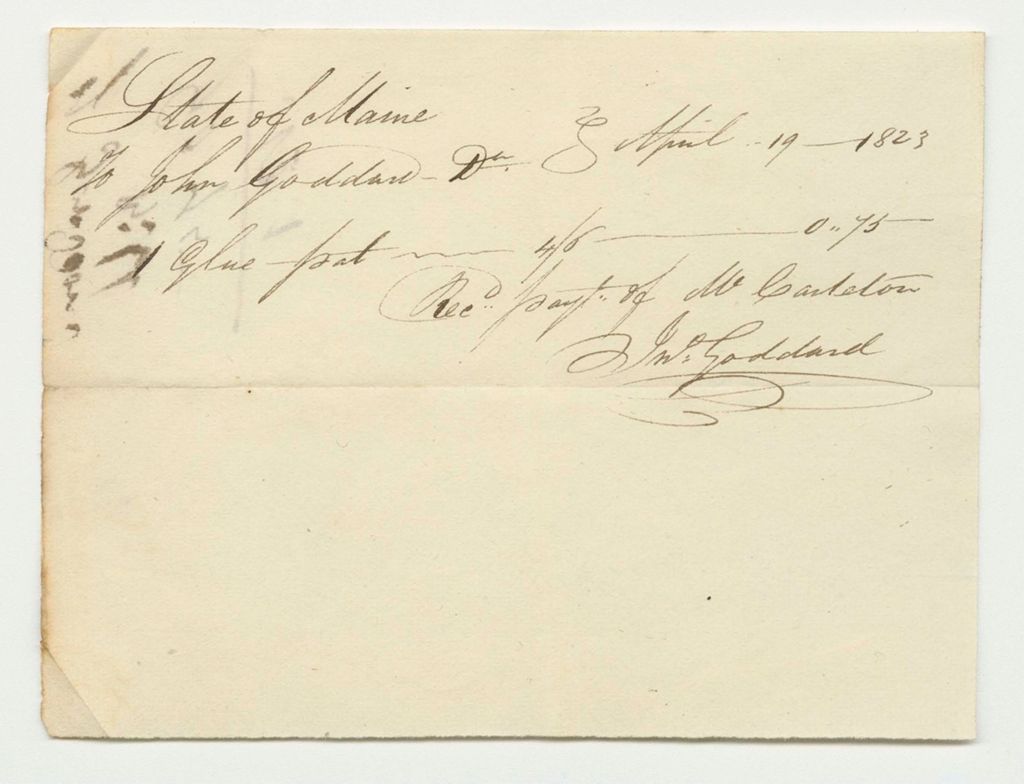 State of Maine
To John Goddard Dr. } April 19 — 1823
1 Glue pot — 4/6 — 0.. 75
Recd. payt. of Mr Carleton
Jno. Goddard